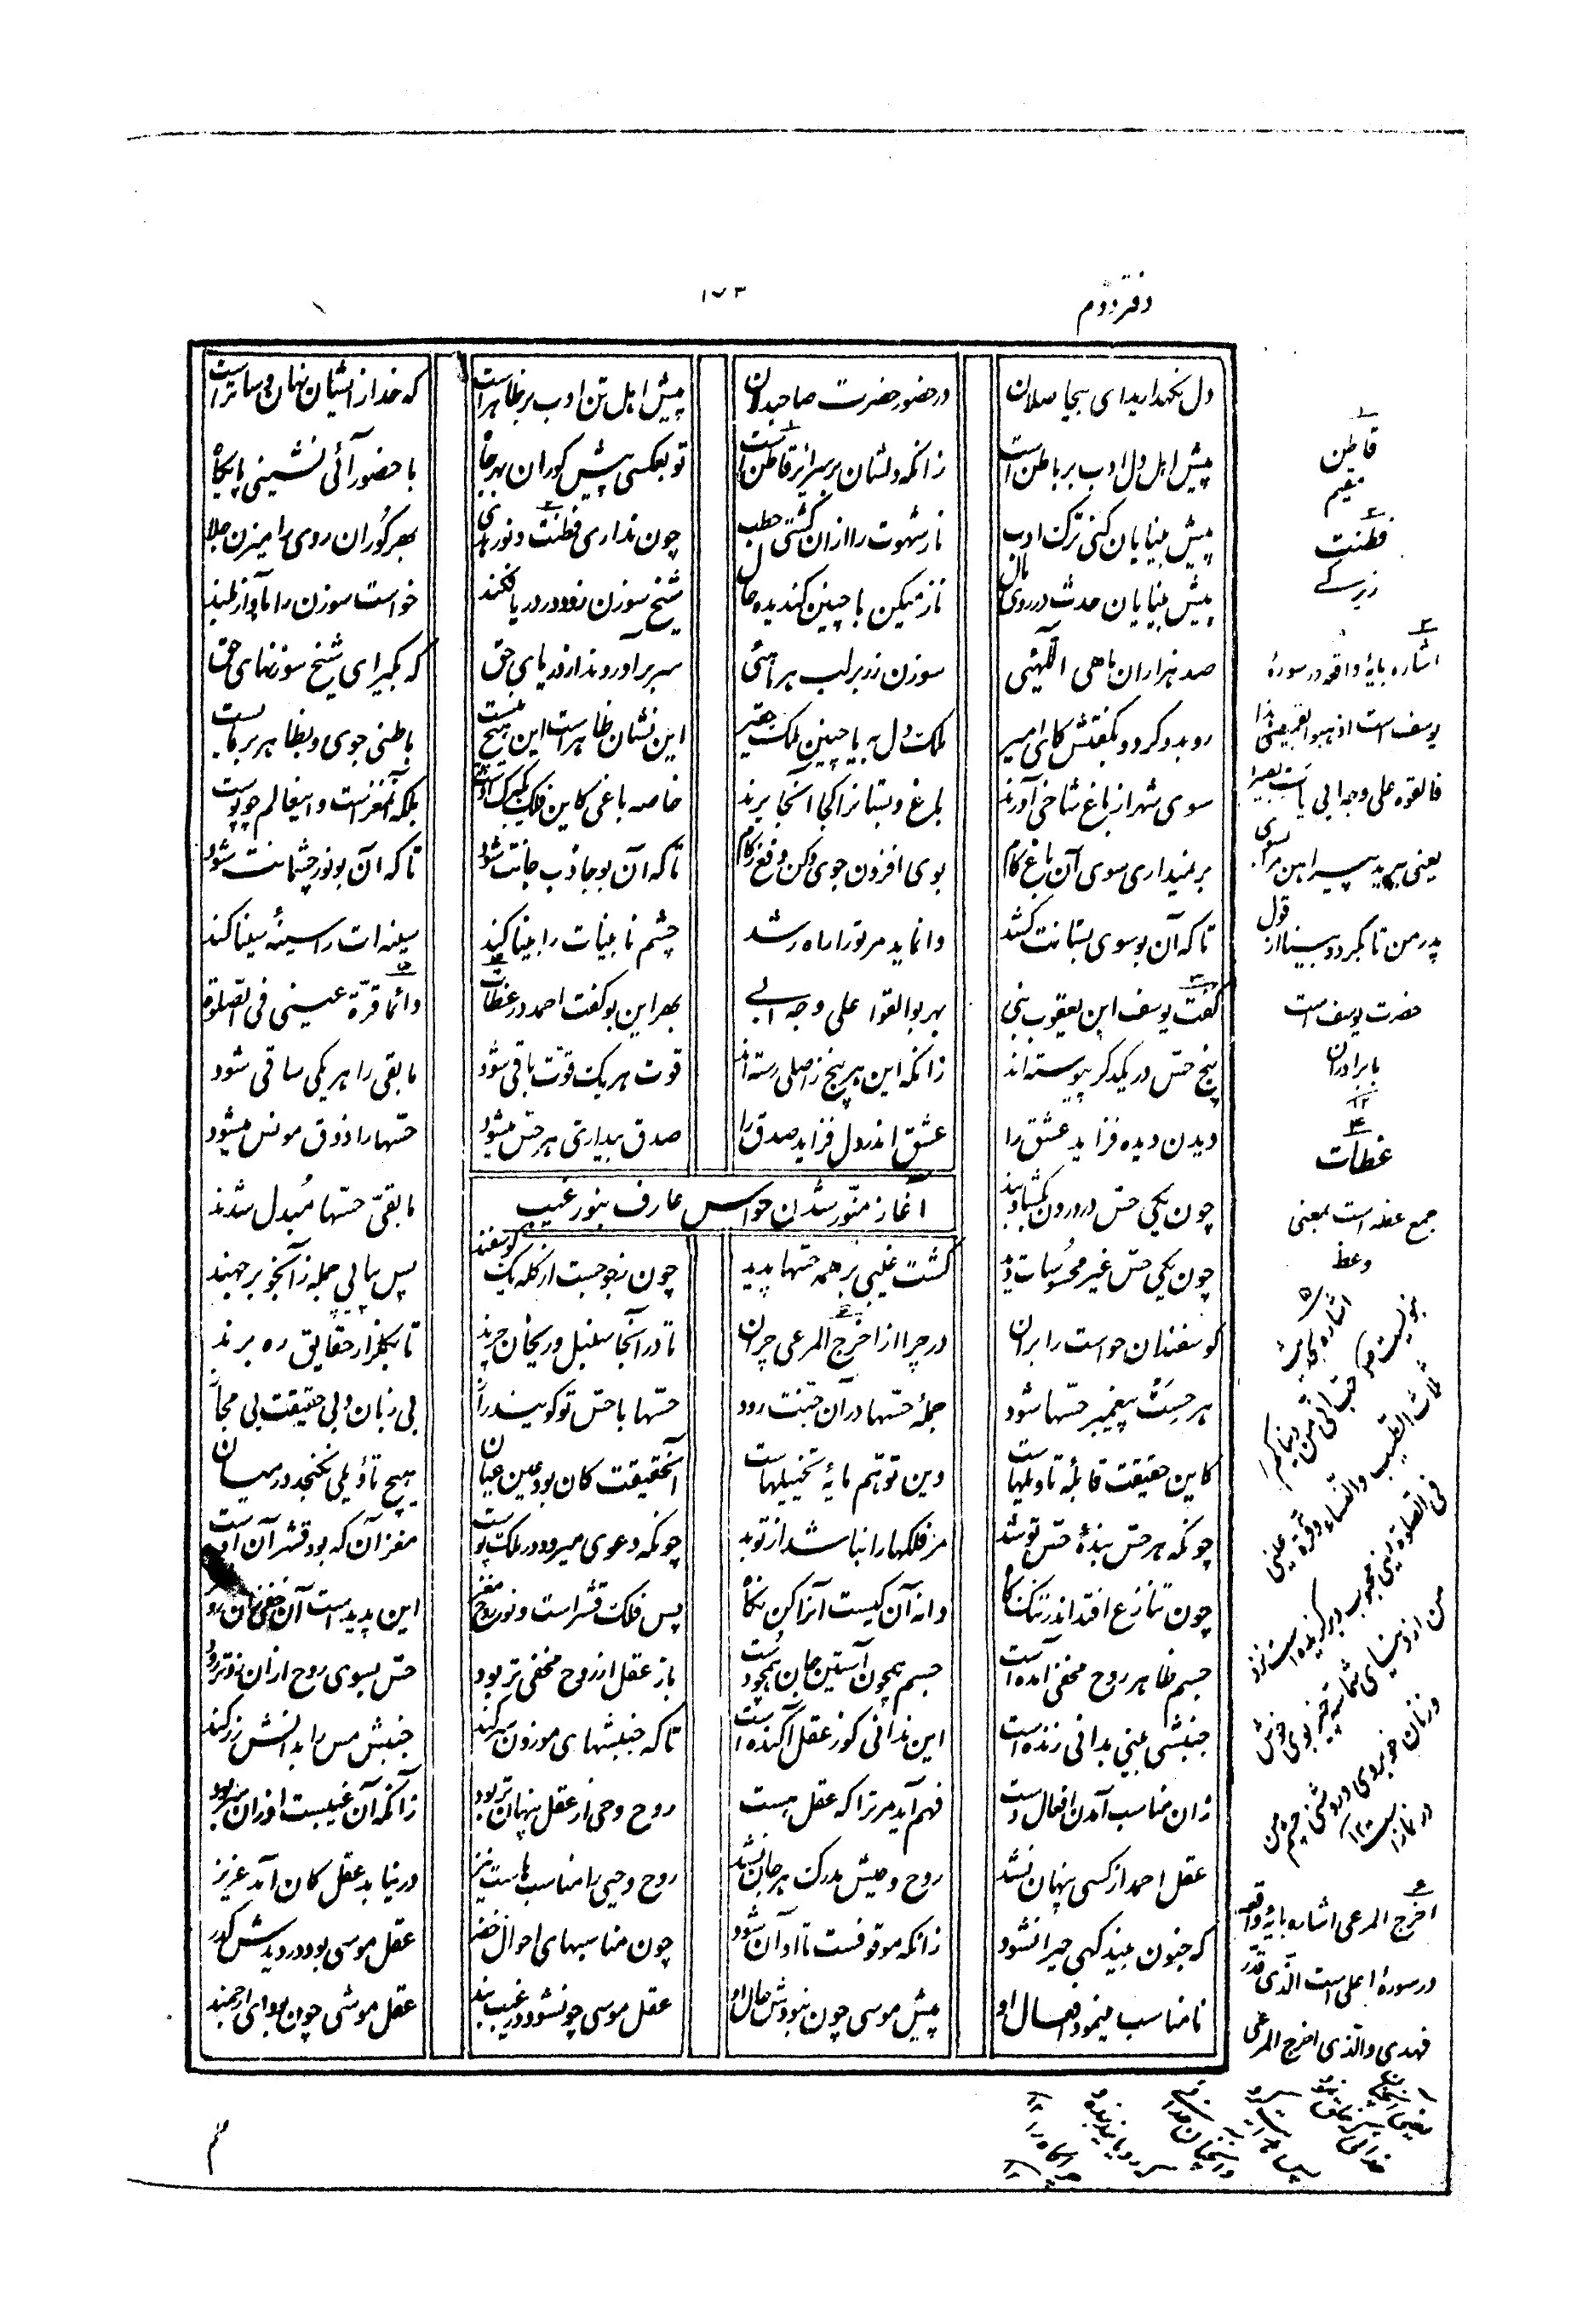 دفتر دوم
۱۷۳
دل نگهدارید ای بیحاصلان در حضور حضرت صاحبدلان پیش اهل تن ادب بر ظاهراست که خدا زایشان نهان را ساتراست
پیش اهل دل ادب بر باطن است زانکه دلشان بر سرائر قاطن است تو بعکسی پیش کوران بهر جاه با حضور آئی نشینی پایگاه
پیش بینایان کنی ترک ادب نار شهوت را از ان گشتی حطب چون نداری فطنت و نور هدی بهر کوران روی را میزن جلا
پیش بینایان حدث در روی مال ناز میکن با چنین گندیده حال شیخ سوزن زود در دریا فکند خواست سوزن را بآواز بلند
صد هزاران ماهی اللهئی سوزن زر بر لب هر ماهئی سر برآوردند از دریای حق که بگیر ای شیخ سوزنهای حق
رو بدو کرد و بگفتش کای امیر ملک دل به یا چنین ملک حقیر این نشان ظاهراست این هیچ نیست باطنی جوی و بظاهر بر مایست
سوی شهر از باغ شاخی آورند باغ و بستانرا کجا آنجا برند خاصه باغی کاین فلک یکبرگ اوست بلکه آن مغزست و اینعالم چو پوست
بر نمیداری سوی آن باغ گام بوی افزون جوی و کن دفع زکام تا که آن بو جاذب جانت شود تا که آن بو نور چشمانت شود
تا که آن بو سوی بستانت کشد وا نماید مر تو را راه رشد چشم نابینات را بینا کند سینه ات را سینهٔ سینا کند
گفت یوسف ابن یعقوب نبی بهر بو القوا علی وجه ابی بهر این بو گفت احمد در عظات دائما قرّة عینی فی الصّلوة
پنج حسّ در یکدگر پیوسته اند زانکه این هر پنج ز اصلی رسته اند قوت هر یک قوّت باقی شود مابقی را هر یکی ساقی شود
دیدن دیده فزاید عشق را عشق اندر دل فزاید صدق را صدق بیداری هر حس میشود حسّها را ذوق مونس میشود
آغاز منوّر شدن حواس عارف بنور غیب
چون یکی حسّ در درون بگشاد بند مابقیّ حسّها مبدل شدند
چون یکی حسّ غیر محسوسات دید گشت غیبی بر همه حسّها پدید چون ز جو جست از گله یک گوسفند پس پیاپی جمله زآنجو بر جهند
گوسفندان حواست را بران در چرا از اخرج المرعی چران تا در آنجا سنبل و ریحان چرند تا بگلزار حقایق ره برند
هر حست پیغمبر حسّها شود جملهٔ حسّها در آن جنّت رود حسّها با حسّ تو گویند راز بی زبان و بی حقیقت بی مجاز
کاین حقیقت قابلهٔ تاویلهاست وین توهّم مایهٔ تخییلهاست آنحقیقت کان بود عین عیان هیچ تاویلی نگنجد در میان
چونکه هر حسّ بندهٔ حسّ تو شد مر فلکها را نباشد از تو بد چونکه دعوی میرود در ملک پوست مغز آن که بود قشر آن اوست
چون تنازع افتد اندر تنگ کاه دانه آن کیست آنرا کن نگاه پس فلک قشر است و نور روح مغز این پدید است آن خفی
جسم ظاهر روح مخفی آمده است جسم همچون آستین جان همچو دست باز عقل از روح مخفی تر بود حسّ بسوی روح از ان زوتر رود
جنبشی بینی بدانی زنده است این ندانی کو ز عقل آکنده است تا که جنبشهای موزون سر کند جنبش مس را بدانش زر کند
زان مناسب آمدن افعال دست فهم آید مر ترا که عقل هست روح وحی از عقل پنهان تر بود زانکه آن غیبست او زان سر بود
عقل احمد از کسی پنهان نشد روح وحیش مدرک هر جان نشد روح وحیی را مناسب هاست نیز در نیابد عقل کان آمد عزیز
که جنون بیند گهی حیران شود زانکه موقوفست تا او آن شود چون مناسبهای احوال خضر عقل موسی بود در دیدش کدر
نامناسب مینمود افعال او پیش موسی چون نبودش حال او عقل موسی چون شود در غیب بند عقل موشی چون بود ای ارجمند
۱
قاطن
مقیم
۲
فطنت
زیرکی
۳
اشاره بآیهٔ واقعه در سورهٔ
یوسف است اذهبوا بقمیصی هذا
فالقوه علی وجه ابی یأت بصیرا
یعنی ببرید پیراهن مرا بسوی
پدر من تا گردد بینا از قول
حضرت یوسف است
با برادران
۱۲
۴
عظات
جمع عظه است بمعنی
وعظ
۵
اشاره بحدیث
حبب الیّ من دنیاکم
ثلث الطیب والنساء وقرة عینی
فی الصلوة یعنی محبوب و برگزیده است نزد
من از دنیای شما سه چیز بوی خوش
و زنان خوبروی و روشنی چشم من
در نماز است ۱۲
۶
اخرج المرعی اشاره بآیه واقعه
در سورهٔ اعلی است الّذی قدّر
فهدی والّذی اخرج المرعی